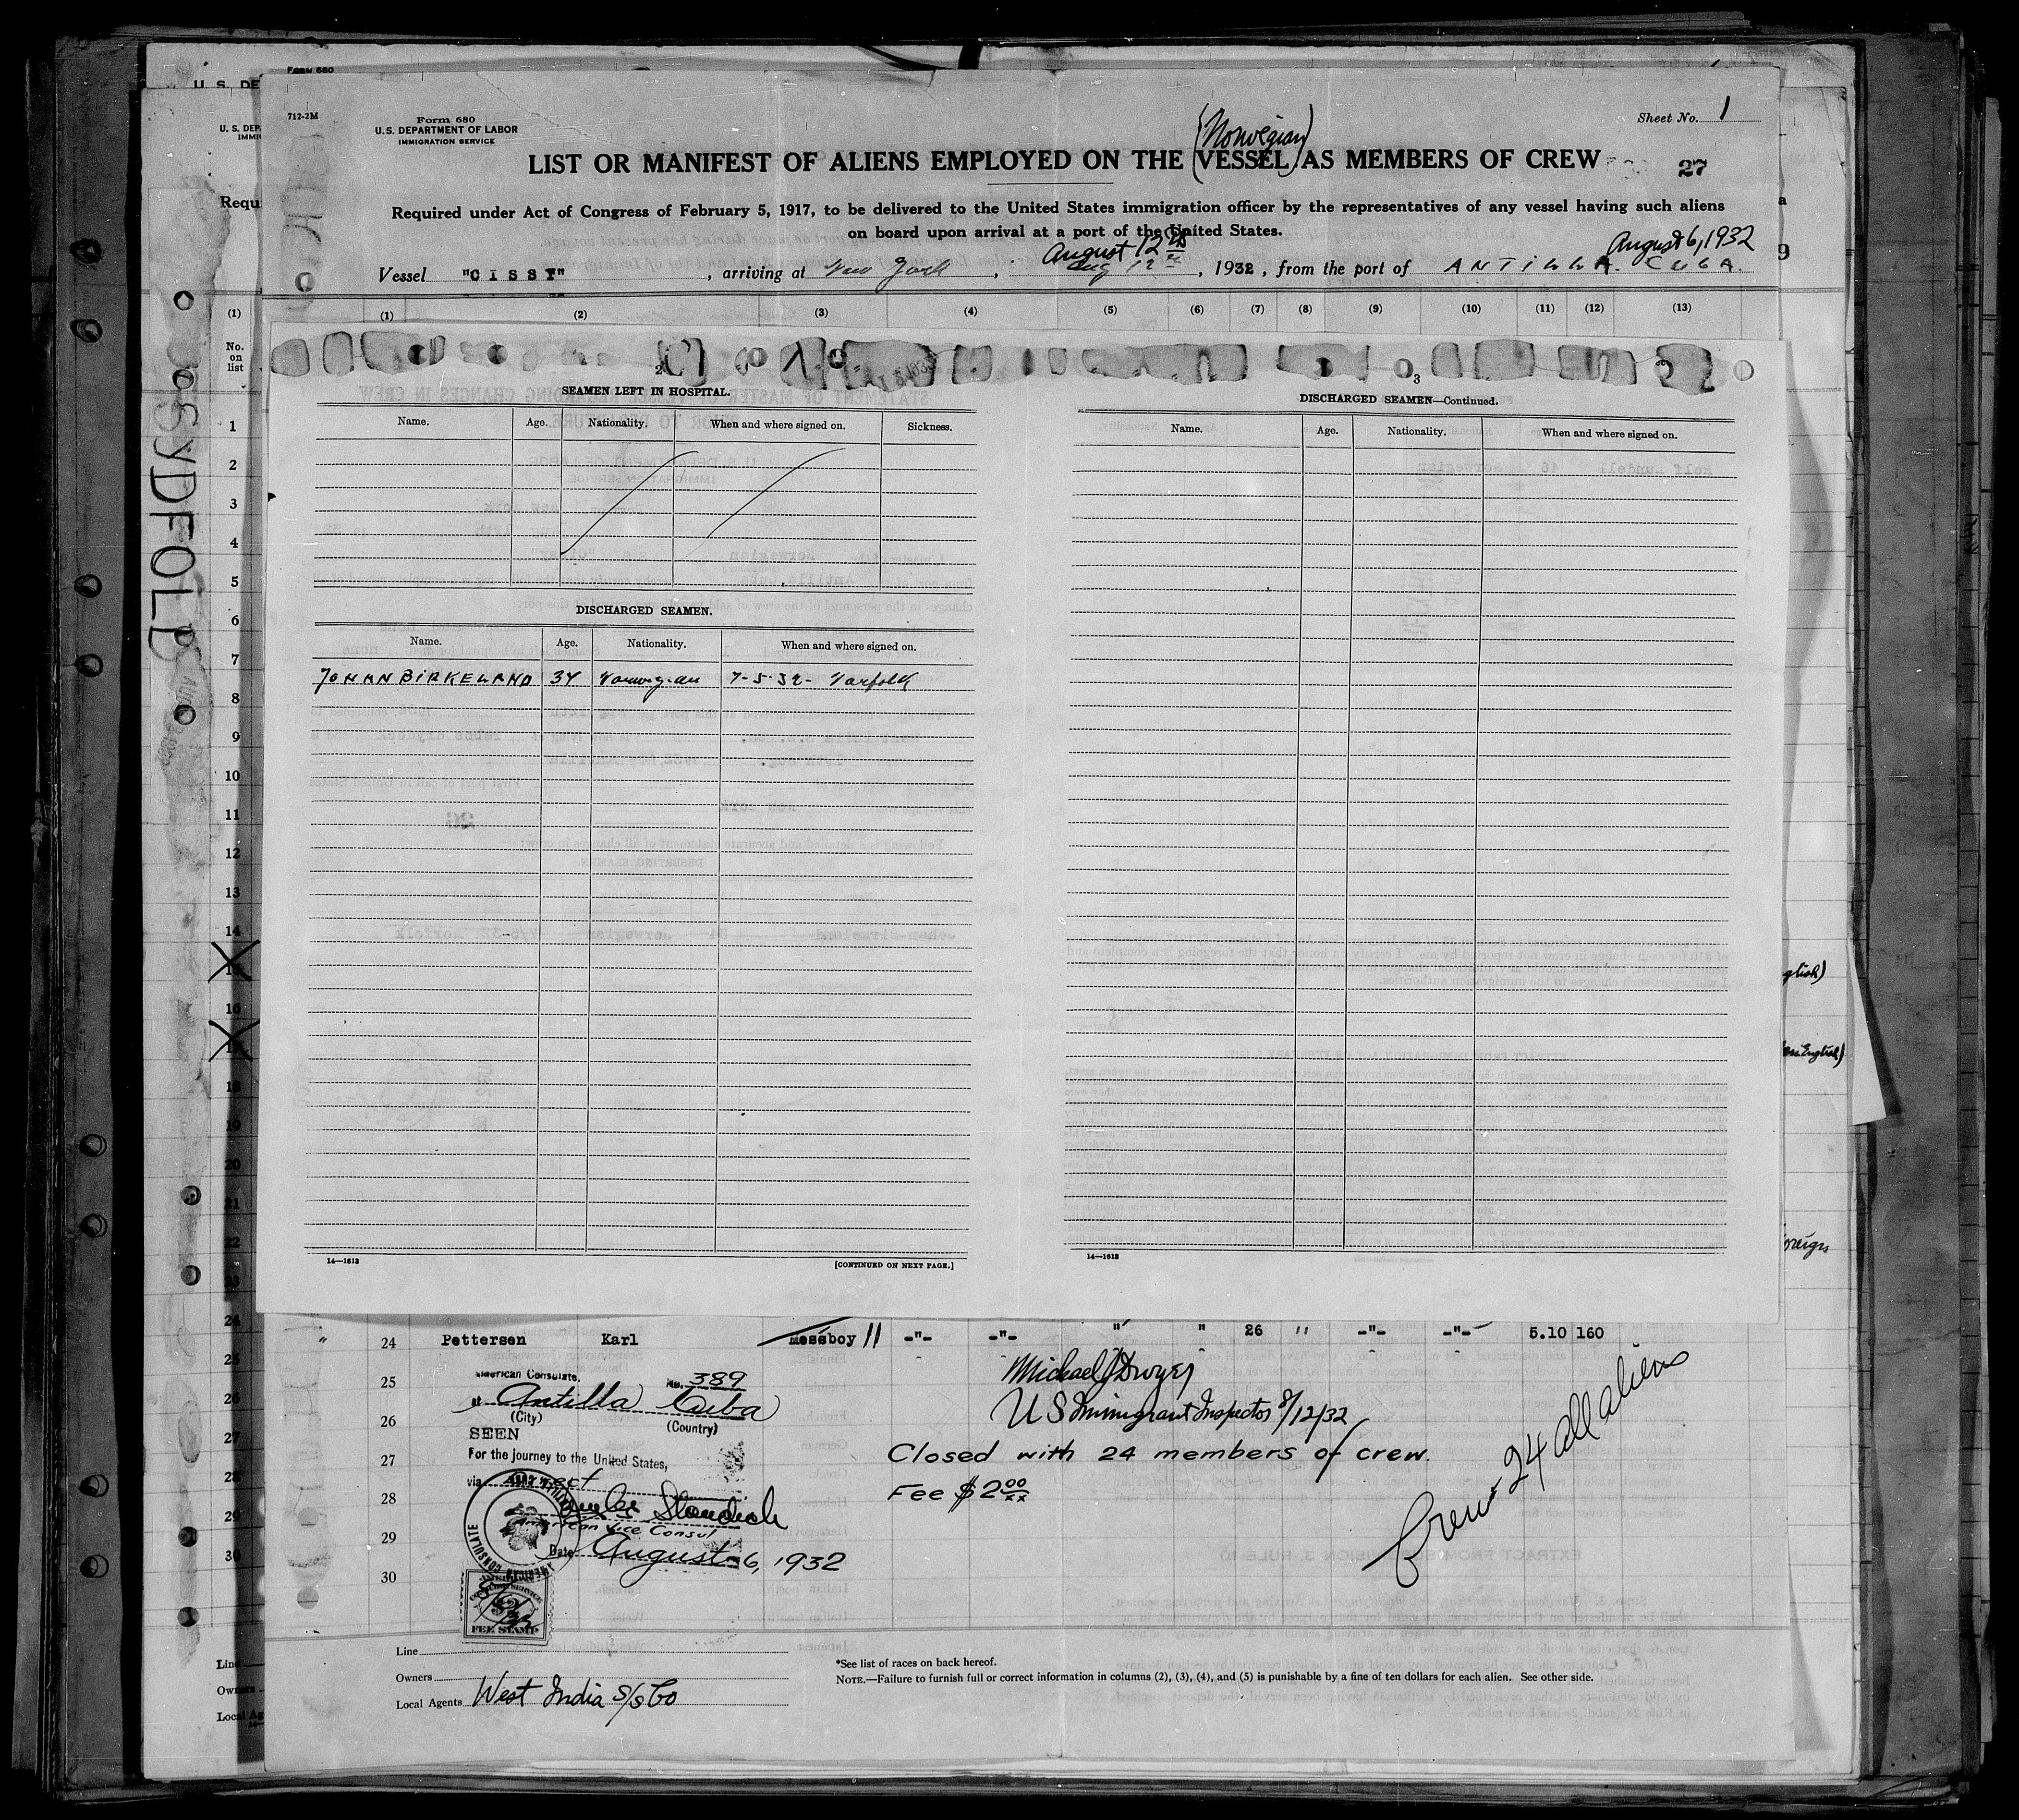 Form 680
U. S. DE
712-2M
Form 680
U. S. DEPARTMENT OF LABOR
IMMIGRATION SERVICE
U. S. DEP
IMMIG
Sheet No. 1
(Norwegian)
LIST OR MANIFEST OF ALIENS EMPLOYED ON THE VESSEL AS MEMBERS OF CREW
27
Requi
Required under Act of Congress of February 5, 1917, to be delivered to the United States immigration officer by the representatives of any vessel having such aliens
on board upon arrival at a port of the United States.
August 12th
August 6, 1932
Vessel "CISSY", arriving at New York, Aug 12th, 1932, from the port of ANTILLA. CUBA.
9
(1)
(1) (2) (3) (4) (5) (6) (7) (8) (9) (10) (11) (12) (13)
No.
on
list
2
3
SEAMEN LEFT IN HOSPITAL.
Name. Age. Nationality. When and where signed on. Sickness.
DISCHARGED SEAMEN—Continued.
Name. Age. Nationality. When and where signed on.
DISCHARGED SEAMEN.
Name. Age. Nationality. When and where signed on.
JOHAN BIRKELAND 34 Norwegian 7-5-32- Norfolk
14—1613
[CONTINUED ON NEXT PAGE.]
14—1613
SYDFOLD
1
2
3
4
5
6
7
8
9
10
11
12
13
14
16
18
19
20
21
22
23
24
25
26
27
28
29
30
glish)
English)
oreign
" 24 Pettersen Karl messboy 11 -"- -"- " " 26 " -"- -"- 5.10 160
25
26
27
28
29
30
American Consulate,
No. 389
at Antilla Cuba
(City) (Country)
SEEN
For the journey to the United States,
via direct
Standish
American Vice Consul
Date August 6, 1932
CONSULATE
FEE STAMP
Michael J Dwyer
U S Immigrant Inspector 8/12/32
Closed with 24 members of crew.
Fee $2.00
Crew 24 all aliens
Line
Owners
Local Agents West India S/S Co
*See list of races on back hereof.
NOTE.—Failure to furnish full or correct information in columns (2), (3), (4), and (5) is punishable by a fine of ten dollars for each alien. See other side.
Line
Owners
Local Ag